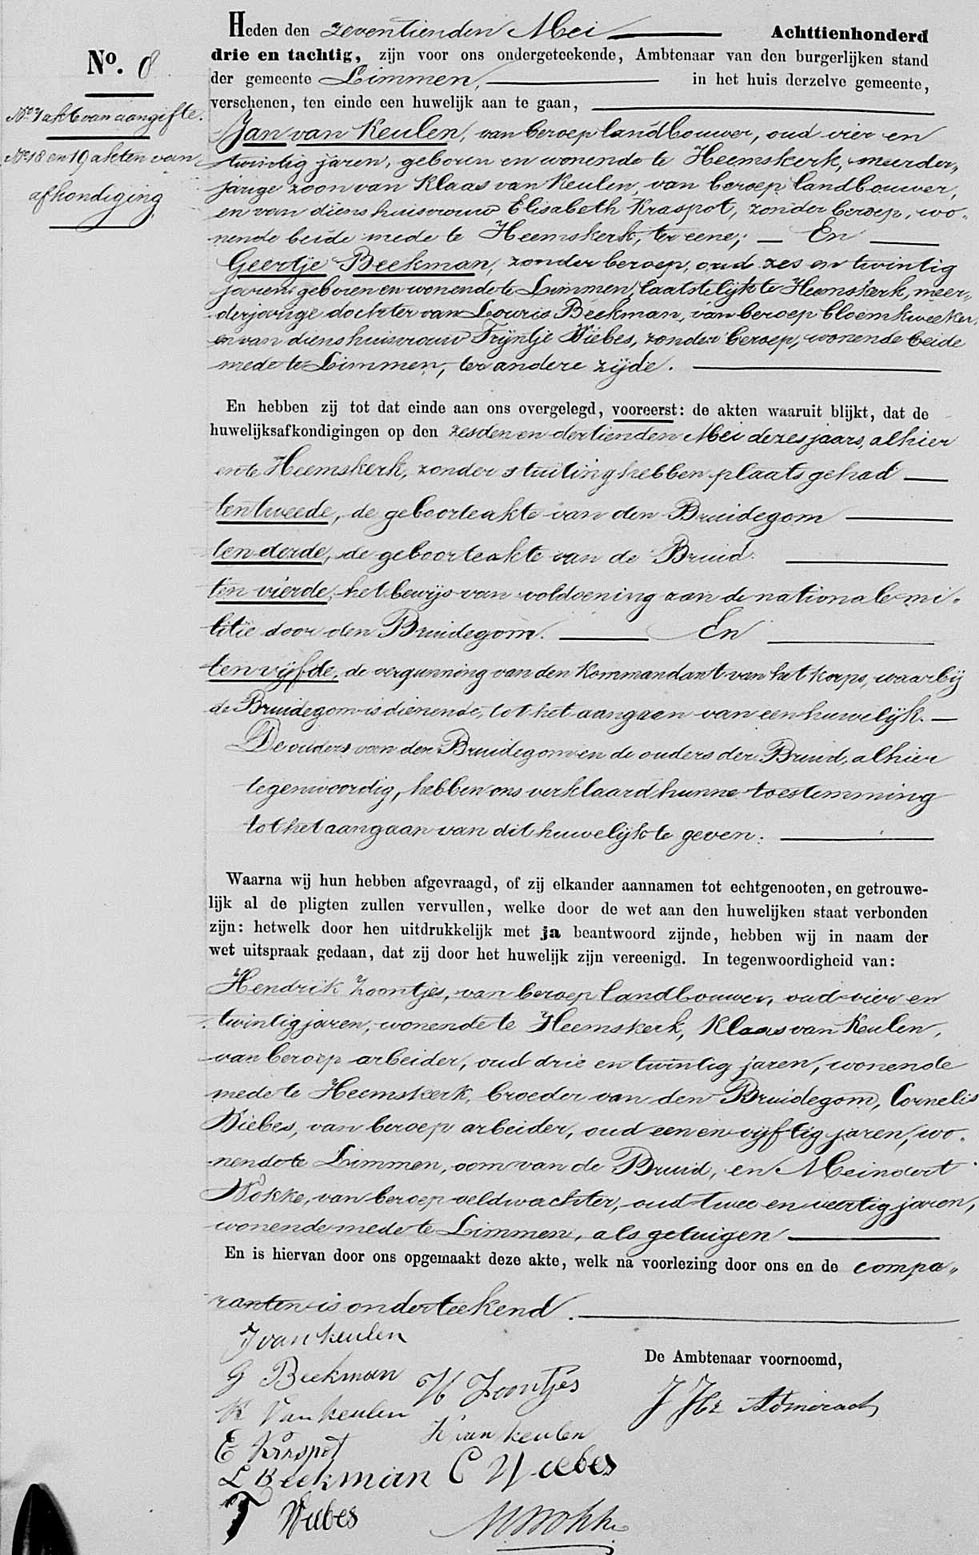 No. 8
No 7 akte van aangifte.
No 18 en 19 akten van
afkondiging
Heden den zeventienden Mei Achttienhonderd
drie en tachtig, zijn voor ons ondergeteekende, Ambtenaar van den burgerlijken stand
der gemeente Limmen, in het huis derzelve gemeente,
verschenen, ten einde een huwelijk aan te gaan,
Jan van Keulen, van beroep landbouwer, oud vier en
twintig jaren, geboren en wonende te Heemskerk, meerder-
jarige zoon van Klaas van Keulen, van beroep landbouwer,
en van diens huisvrouw Elisabeth Kraspot, zonder beroep, wo-
nende beide mede te Heemskerk, ter eene; — En
Geertje Beekman, zonder beroep, oud zes en twintig
jaren geboren en wonende te Limmen, laatstelijk te Heemskerk, meer-
derjarige dochter van Louris Beekman, van beroep bloemkweeker,
en van diens huisvrouw Trijntje Wiebes, zonder beroep, wonende beide
mede te Limmen, ter andere zijde.
En hebben zij tot dat einde aan ons overgelegd, vooreerst: de akten waaruit blijkt, dat de
huwelijksafkondigingen op den zesden en dertienden Mei dezes jaars, alhier
en te Heemskerk, zonder stuiting hebben plaats gehad
ten tweede, de geboorteakte van den Bruidegom
ten derde, de geboorteakte van de Bruid.
ten vierde, het bewijs van voldoening aan de nationale mi-
litie door den Bruidegom. En
ten vijfde, de vergunning van den Kommandant van het korps, waarbij
de Bruidegom is dienende, tot het aangaan van een huwelijk.
De ouders van den Bruidegom en de ouders der Bruid, alhier
tegenwoordig, hebben ons verklaard hunne toestemming
tot het aangaan van dit huwelijk te geven.
Waarna wij hun hebben afgevraagd, of zij elkander aannamen tot echtgenooten, en getrouwe-
lijk al de pligten zullen vervullen, welke door de wet aan den huwelijken staat verbonden
zijn: hetwelk door hen uitdrukkelijk met ja beantwoord zijnde, hebben wij in naam der
wet uitspraak gedaan, dat zij door het huwelijk zijn vereenigd. In tegenwoordigheid van:
Hendrik Zoontjes, van beroep landbouwer, oud vier en
twintig jaren, wonende te Heemskerk, Klaas van Keulen,
van beroep arbeider, oud drie en twintig jaren, wonende
mede te Heemskerk, broeder van den Bruidegom, Cornelis
Wiebes, van beroep arbeider, oud een en vijftig jaren, wo-
nende te Limmen, oom van de Bruid, en Meindert
Nokke, van beroep veldwachter, oud twee en veertig jaren,
wonende mede te Limmen, als getuigen
En is hiervan door ons opgemaakt deze akte, welk na voorlezing door ons en de compa-
ranten is onderteekend.
J van Keulen
De Ambtenaar voornoemd,
G Beekman
H Zoontjes
K Van Keulen
K van Keulen
E Kraspot
L Beekman C Wiebes
T Wiebes
M Nokke